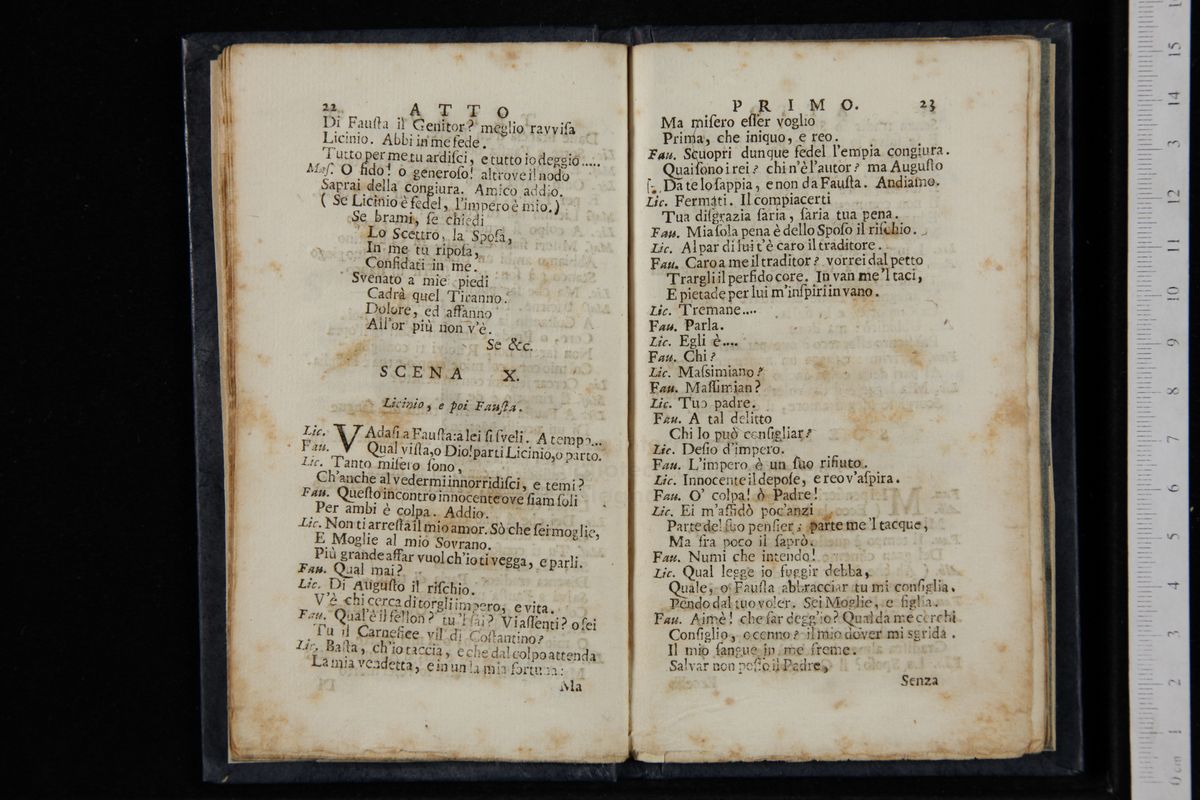 22 ATTO
Di Fauſta il Genitor? meglio ravviſa
Licinio. Abbi in me fede.
Tutto per me tu ardiſci, e tutto io deggio.....
Maſ. O fido! o generoſo! altrove il nodo
Saprai della congiura. Amico addio.
( Se Licinio è fedel, l'impero è mio.)
Se brami, ſe chiedi
Lo Scettro, la Spoſa,
In me tu ripoſa,
Confidati in me.
Svenato a mie piedi
Cadrà quel Tiranno.
Dolore, ed affanno
All'or più non v'è.
Se &c.
SCENA X.
Licinio, e poi Fauſta.
Lic. VAdaſi a Fauſta: a lei ſi ſveli. A tempo...
Fau. Qual viſta, o Dio! parti Licinio, o parto.
Lic. Tanto miſero ſono,
Ch'anche al vedermi innorridiſci, e temi?
Fau. Queſto incontro innocente ove ſiam ſoli
Per ambi è colpa. Addio.
Lic. Non ti arreſta il mio amor. Sò che ſei moglie,
E Moglie al mio Sovrano.
Più grande affar vuol ch'io ti vegga, e parli.
Fau. Qual mai?
Lic. Di Auguſto il riſchio.
V'è chi cerca di torgli impero, e vita.
Fau. Qual'è il fellon? tu'l ſai? Viaſſenti? o ſei
Tu il Carnefice vil di Coſtantino?
Lic. Baſta, ch'io taccia, e che dal colpo attenda
La mia vendetta, e in un la mia fortuna:
Ma
PRIMO. 23
Ma miſero eſſer voglio
Prima, che iniquo, e reo.
Fau. Scuopri dunque fedel l'empia congiura.
Quai ſono i rei? chi n'è l'autor? ma Auguſto
Da te lo ſappia, e non da Fauſta. Andiamo.
Lic. Fermati. Il compiacerti
Tua diſgrazia ſaria, ſaria tua pena.
Fau. Mia ſola pena è dello Spoſo il riſchio.
Lic. Al par di lui t'è caro il traditore.
Fau. Caro a me il traditor? vorrei dal petto
Trargli il perfido core. In van me'l taci,
E pietade per lui m'inſpiri in vano.
Lic. Tremane....
Fau. Parla.
Lic. Egli è....
Fau. Chi?
Lic. Maſsimiano?
Fau. Maſſimian?
Lic. Tuo padre.
Fau. A tal delitto
Chi lo può conſigliar?
Lic. Deſio d'impero.
Fau. L'impero è un ſuo rifiuto.
Lic. Innocente il depoſe, e reo v'aſpira.
Fau. O' colpa! ò Padre!
Lic. Ei m'affidò poc'anzi
Parte del ſuo penſier; parte me'l tacque,
Ma fra poco il ſaprò.
Fau. Numi che intendo!
Lic. Qual legge io fuggir debba,
Quale, o Fauſta abbracciar tu mi conſiglia.
Pendo dal tuo voler. Sei Moglie, e figlia.
Fau. Aimè! che far degg'io? Qual da me cerchi
Conſiglio, o cenno? il mio dover mi sgrida.
Il mio ſangue in me freme.
Salvar non poſſo il Padre,
Senza